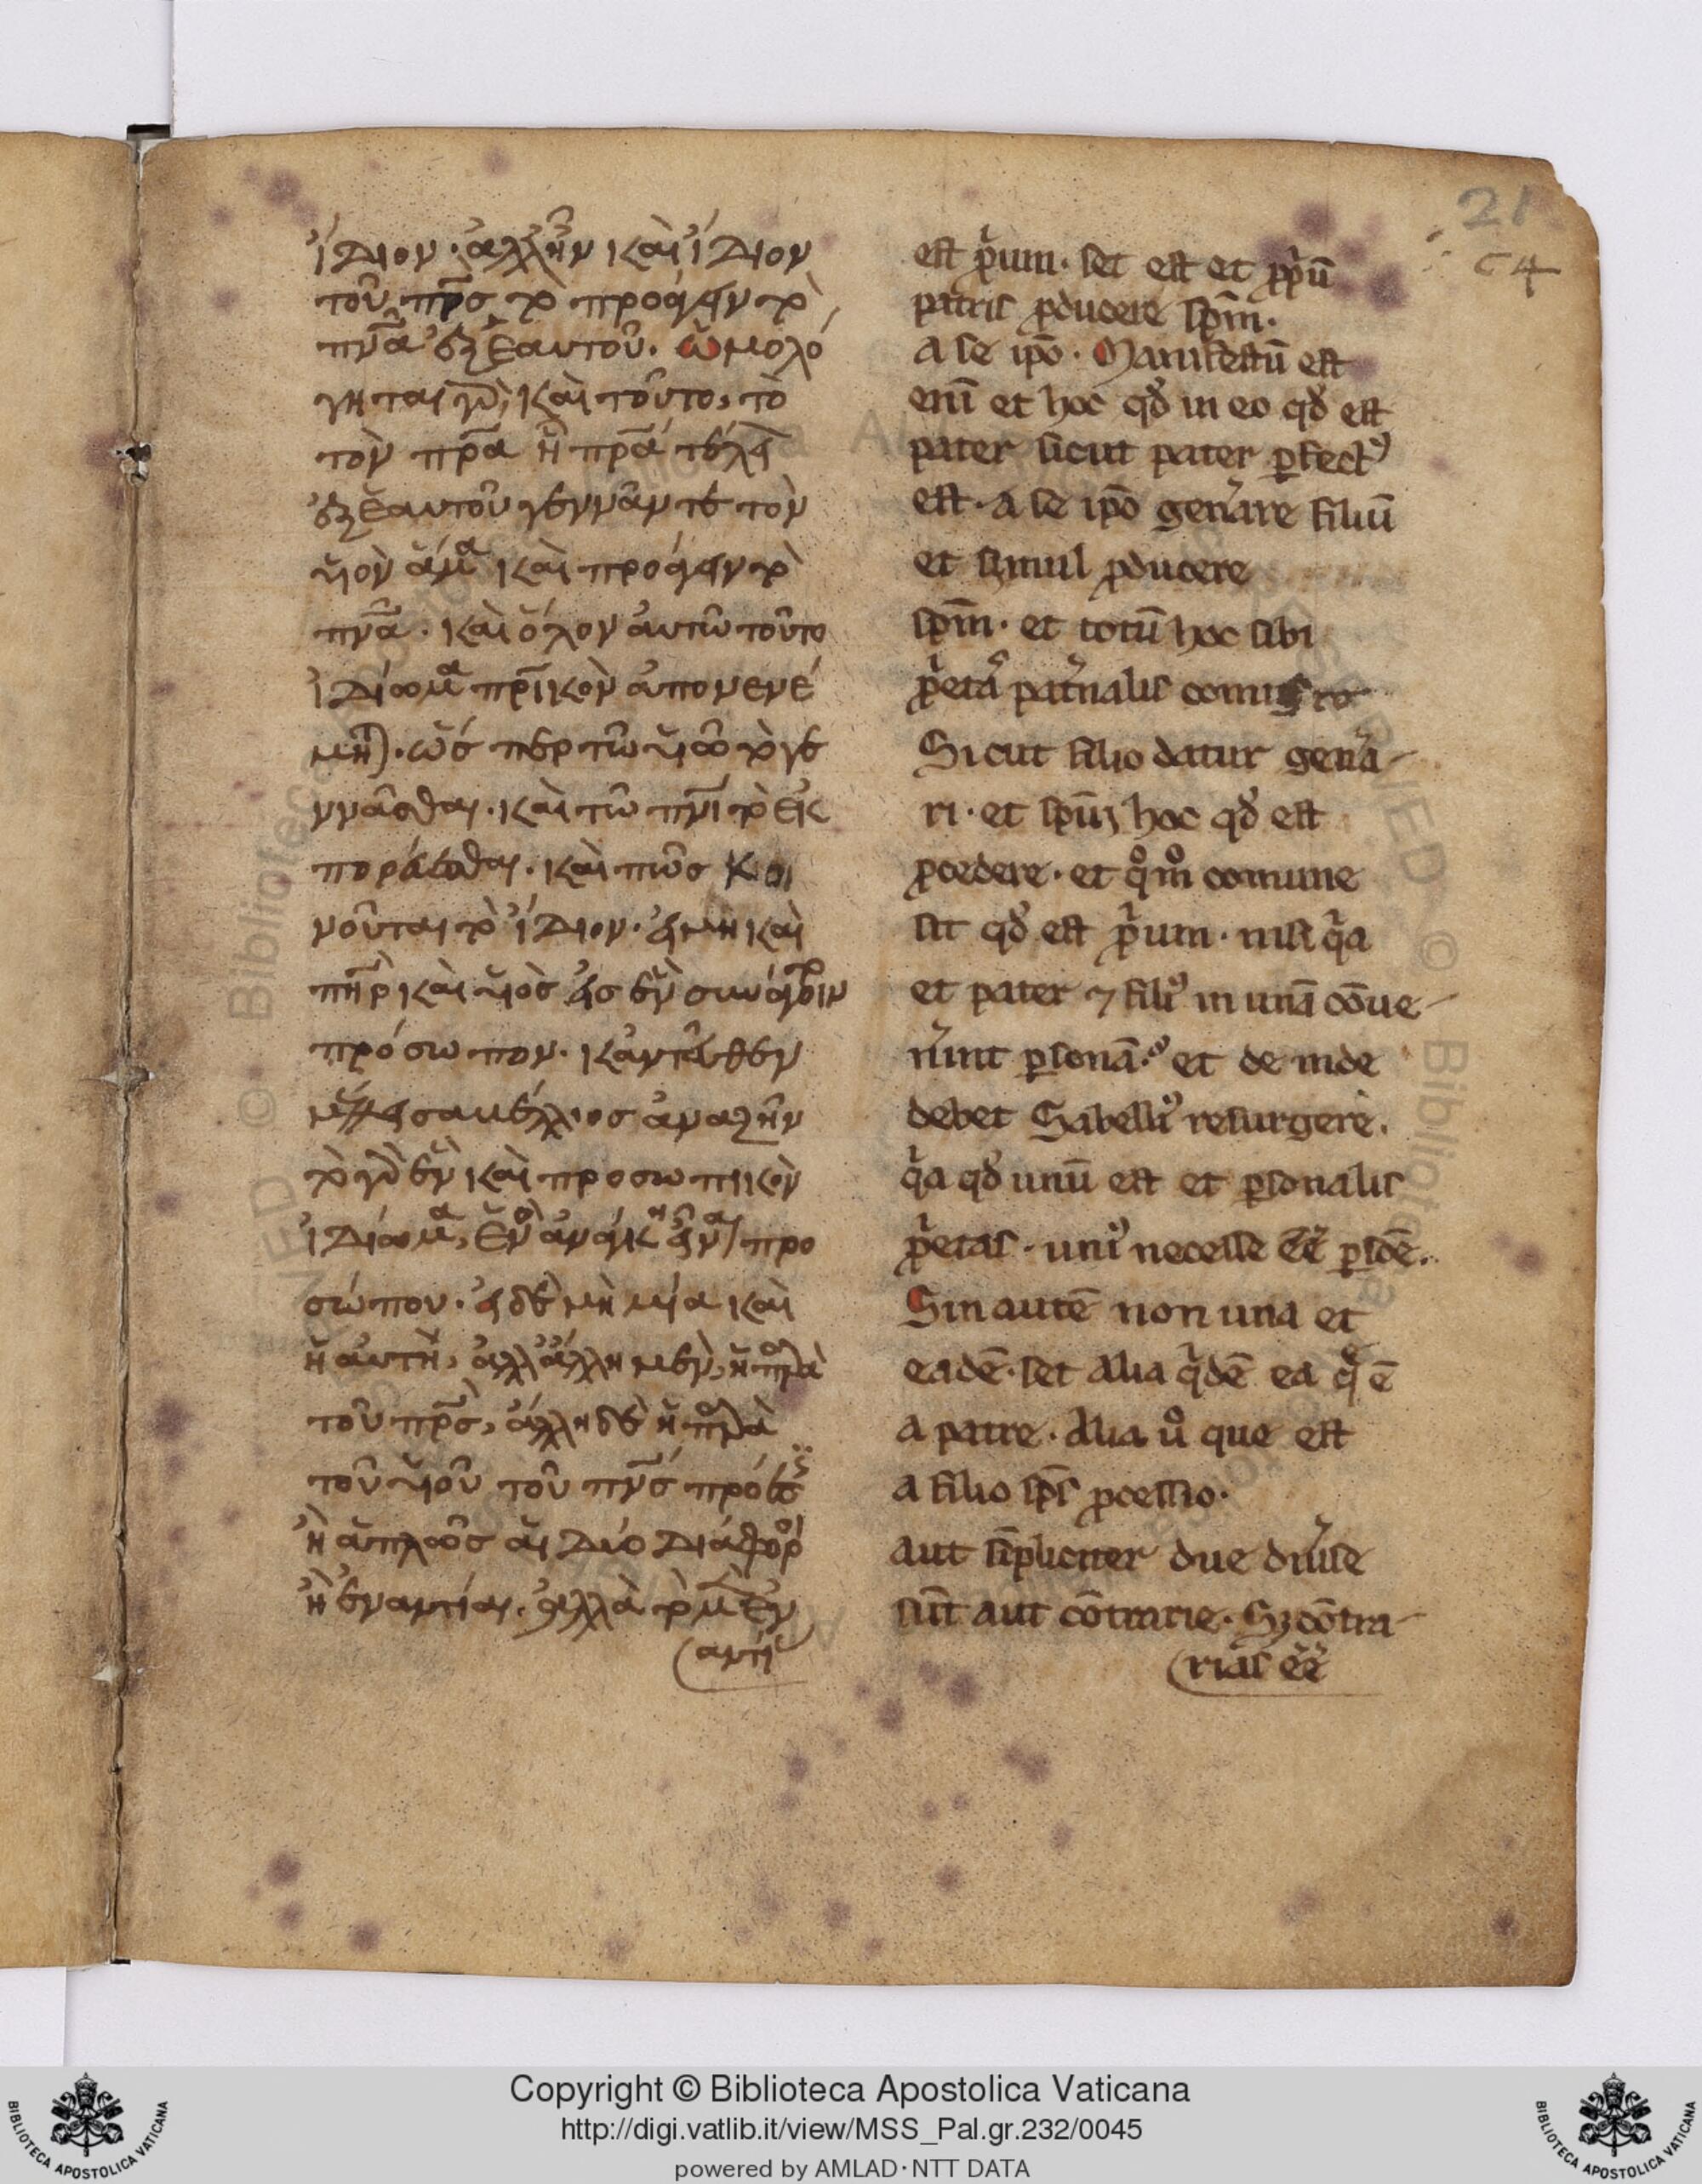 ἴδιον· ἀλλ' ἦν καὶ ἴδιον
τοῦ πρ̅σ τὸ προάγειν τὸ
πν̅α ἐξ ἑαυτοῦ. ὡμολό
γηται γὰρ καὶ τοῦτο, τὸ
τὸν πρ̅α ἧ πρ̅α τέλει
ἐξ ἑαυτοῦ γεννᾶν τε τὸν
υἱὸν ἅμα καὶ προάγειν τὸ
πν̅α. καὶ ὅλον αὐτῶ τοῦτο
ἰδίωμα πρ̅ικὸν ἀπονενέ
μηται. ὥσπερ τῶ υἱῶ τὸ γε
ννᾶσθαι. καὶ τῶ πν̅ι τὸ ἐκ
πορεύεσθαι. καὶ πῶς κοι
νοῦται τὸ ἴδιον. εἰ μὴ καὶ
πη̅ρ καὶ υἱὸς εἰς ἓν συνάγοιντο
πρόσωπον. κἀντεῦθεν
σαβέλλιος ἀναζῆν
τὸ γὰρ ἓν καὶ προσωπικὸν
ἰδίωμα, ἑνὸς ἀνάγκη εἶναι προ
σώπου. εἰ δὲ μὴ μία καὶ
ἡ αὐτὴ, ἀλλ' ἄλλη μὲν, ἡ παρὰ
τοῦ πρ̅σ, ἄλλη δὲ ἡ παρὰ
τοῦ υἱοῦ τοῦ πν̅σ πρόεισι
ἢ ἁπλῶς αἱ δύο διάφοροι
ἢ ἐναντίαι. ἀλλὰ τὸ μὲν ἐν
αντί
est ꝓ̍um· set est et ꝓpͥū
patris ꝓducere sp̅m·
a se ip̅o· Manifestū est
eni̅ et hoc qd̓ in eo qd̓ est
pater sicut pater ꝑfectꝰ
est· a se ip̅o gen̓are filiū
et simul ꝓducere
sp̅m· et totū hoc sibi
ꝓ̍etas pat̓nalis
Sicut filio datur gen̓a-
ri· et sp̅uі hoc qd̓ est
ꝓcedere· et qͦmͦ comune
sit qd̓ est ꝓ̍um· nisi qͥa
et pater ⁊ filiꝰ in unā cōue-
n̓int ꝑsonā· et de inde
debet Sabelliꝰ resurgere.
qͥa qd̓ unū est et ꝑsonalis
ꝓ̍etas· uniꝰ necesse ee̅ ꝑsoē.
Sin autē non una et
eadē· set alia qͥdē ea q̄ ē
a patre· Alia uͦ que est
a filio sp̅s ꝓcessio·
aut si̅pliciter due diu̓se
su̅t aut co̅trarie· Sꝫ co̅tra-
rias ee̅
21
C4
Copyright © Biblioteca Apostolica Vaticana
http://digi.vatlib.it/view/MSS_Pal.gr.232/0045
powered by AMLAD·NTT DATA
BIBLIOTECA APOSTOLICA VATICANA
BIBLIOTECA APOSTOLICA VATICANA